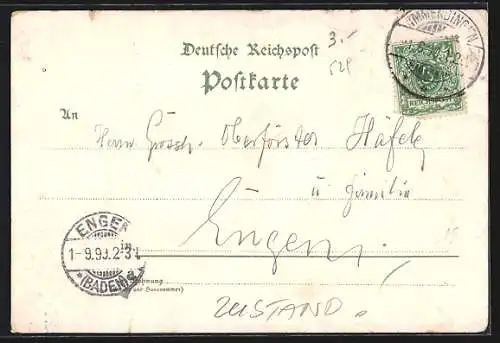 3.-
Deutsche Reichspost
IMMENDINGEN
52f
Postkarte
REICHSPOST
An
Herrn Grossh. Oberförster Häfele
u. Familie
ENGEN
Engen
1-9.99.2-3N
in
(BADEN)
Wohnung
(Strasse und Hausnummer)
ZUSTAND!